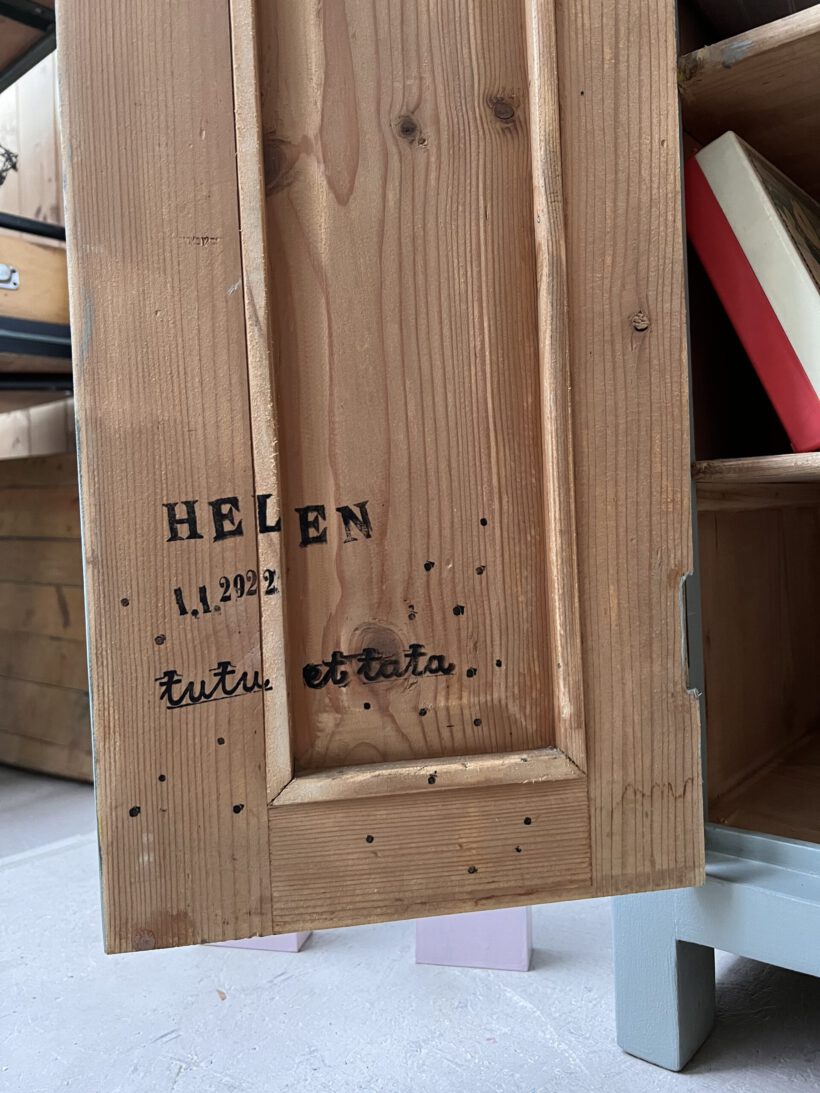 HELEN
1.1.2022
tutu et tata